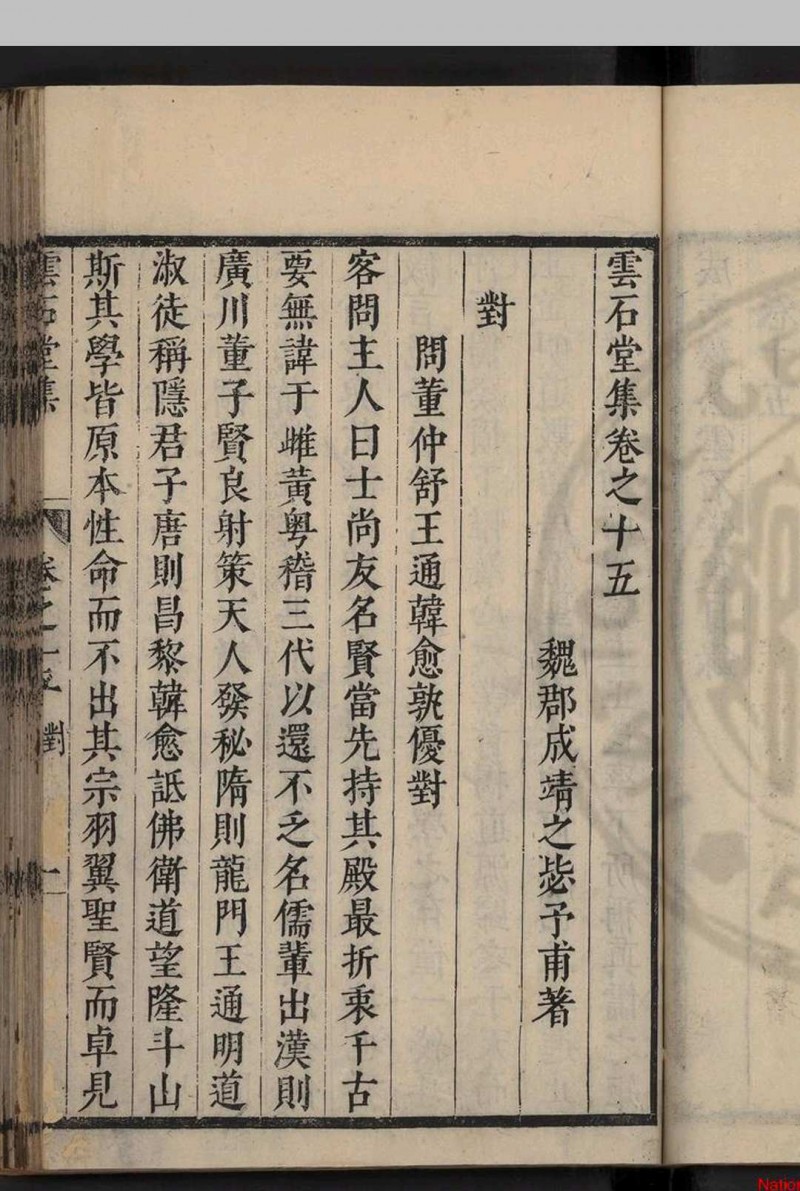 雲石堂集卷之十五
魏郡成靖之毖予甫著
對
問董仲舒王通韓愈孰優對
客問主人曰士尚友名賢當先持其殿最折衷千古
要無諱于雌黃粤稽三代以還不乏名儒輩出漢則
廣川董子賢良射策天人發秘隋則龍門王通明道
淑徒稱隱君子唐則昌黎韓愈詆佛衛道望隆斗山
斯其學皆原本性命而不出其宗羽翼聖賢而卓見
雲石堂集 卷之十五 對
Nation